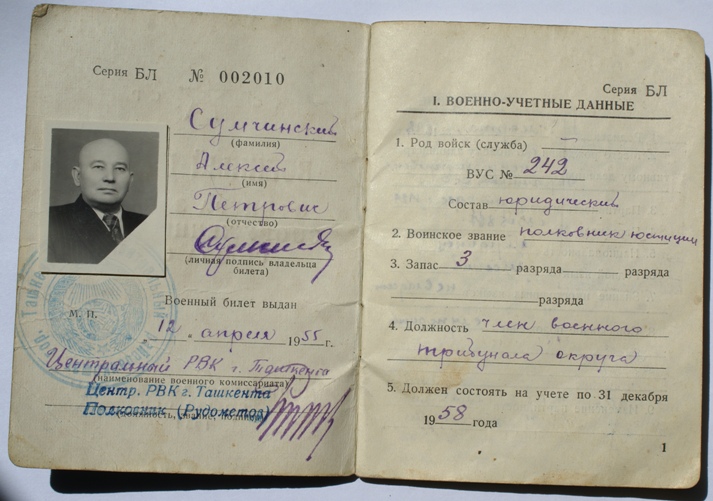 Серия БЛ № 002010
Сумчинский
(фамилия)
Алексей
(имя)
Петрович
(отчество)
(личная подпись владельца
билета)
Военный билет выдан
М. П.
„12“ апреля 1955 г.
Центральный РВК г. Ташкента
(наименование военного комиссариата)
Центр. РВК г. Ташкента
Полковник (Рудометов)
Серия БЛ
I. ВОЕННО-УЧЕТНЫЕ ДАННЫЕ
1. Род войск (служба) —
ВУС № 242
Состав юридический
2. Воинское звание полковник юстиции
3. Запас 3 разряда разряда
разряда
4. Должность член военного
трибунала округа
5. Должен состоять на учете по 31 декабря
1958 года
1